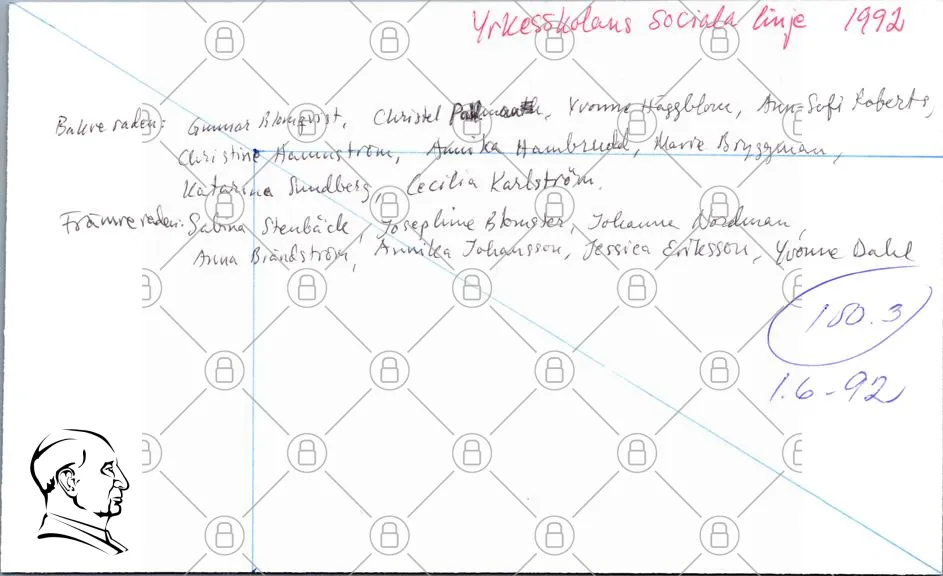 Yrkesskolans sociala linje 1992
Bakre raden: Gunnar Blomqvist, Christel, Yvonne Häggblom, Ann-Sofi Roberts,
Christine Hammström, Annika Hambrudd, Marie Bryggman,
Katarina Sundberg, Cecilia Karlström.
Främre raden: Sabina Stenbäck, Josephine Blomster, Johanna Nordman,
Anna Brändström, Annika Johansson, Jessica Eriksson, Yvonne Dahl
150.3
1.6-92